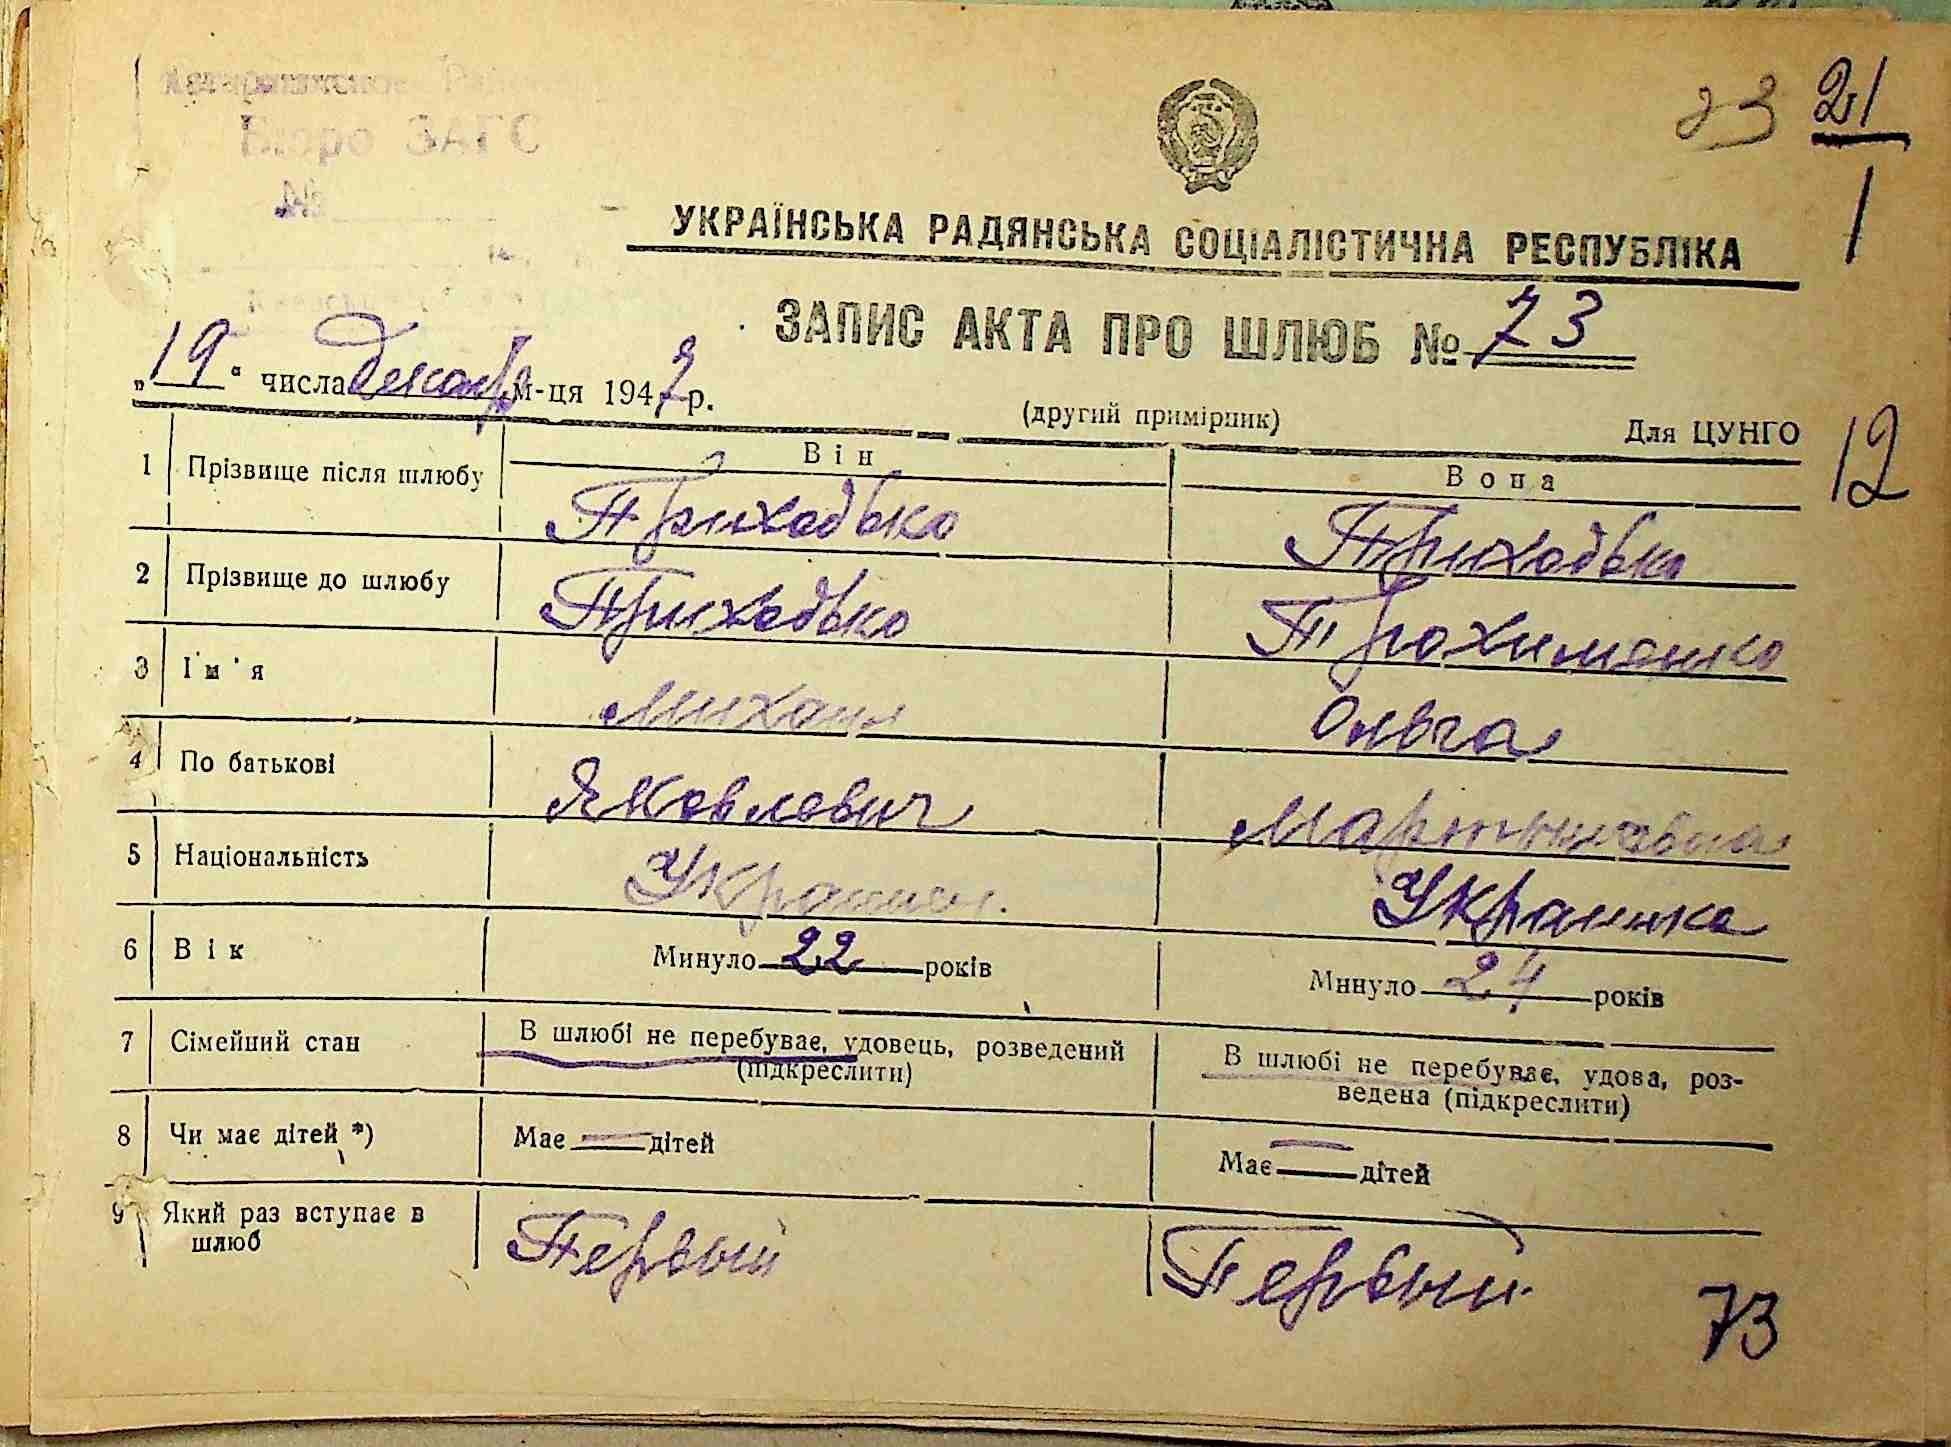 Бюро ЗАГС
№
23 21
1
УКРАЇНСЬКА РАДЯНСЬКА СОЦІАЛІСТИЧНА РЕСПУБЛІКА
ЗАПИС АКТА ПРО ШЛЮБ № 73
„19" числа декабр м-ця 1947 р.
(другий примірник) Для ЦУНГО
12
Він Вона
1 Прізвище після шлюбу Приходько Приходько
2 Прізвище до шлюбу Приходько Трохименко
3 Ім'я Михаил Ольга
4 По батькові Яковлевич Мартыновна
5 Національність Украинец. Украинка
6 Вік Минуло 22 років Минуло 24 років
7 Сімейний стан В шлюбі не перебуває, удовець, розведений (підкреслити) В шлюбі не перебуває, удова, роз-
ведена (підкреслити)
8 Чи має дітей *) Має — дітей Має — дітей
9 Який раз вступає в шлюб Первый Первый
73